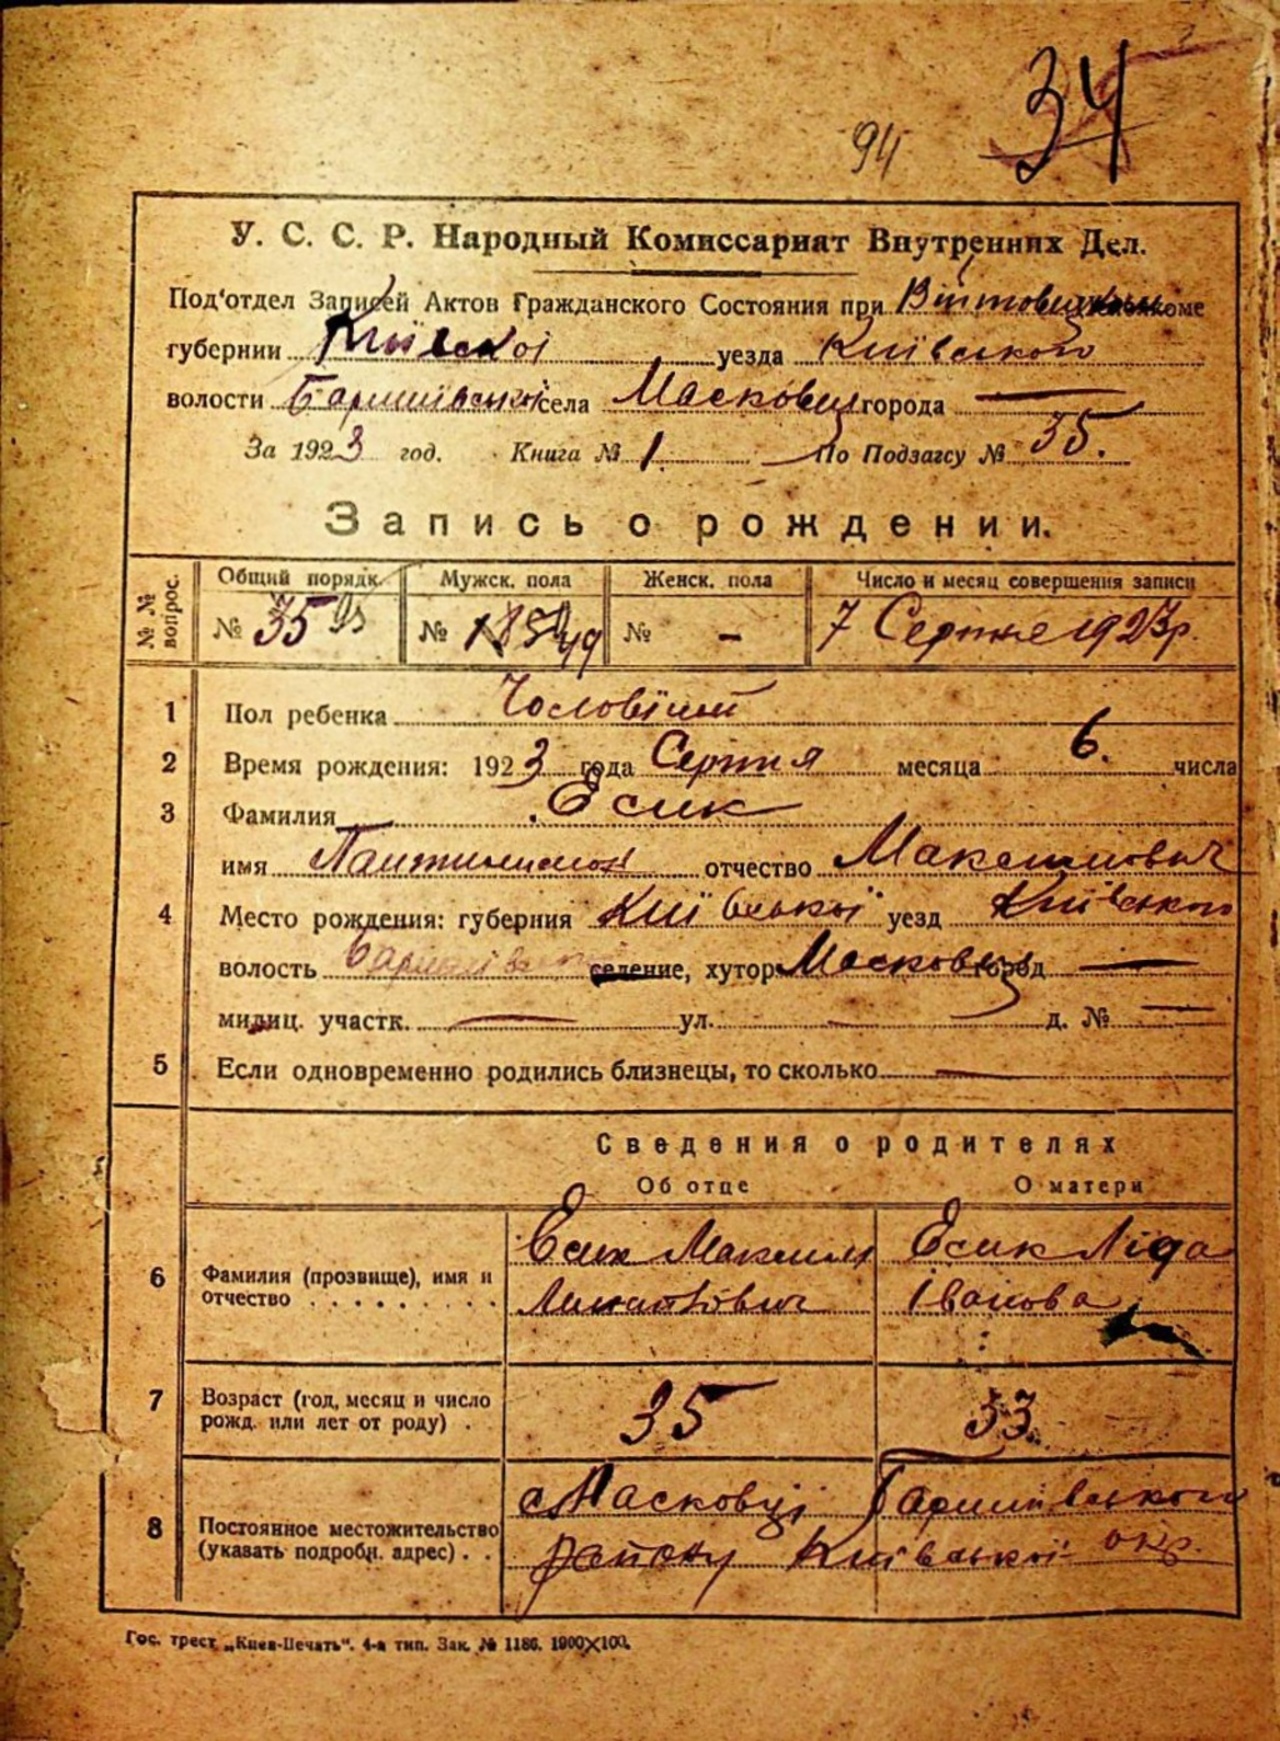 34
94
У. С. С. Р. Народный Комиссариат Внутренних Дел.
Под'отдел Записей Актов Гражданского Состояния при
губернии Київської уезда Київського
волости села Масковец города —
За 1923 год. Книга № 1. По Подзагсу № 35.
Запись о рождении.
№№ вопрос.
Общий порядк. Мужск. пола Женск. пола Число и месяц совершения записи
№ 35 № № - 7 Серпня 1923р.
1 Пол ребенка Чоловічий
2 Время рождения: 1923 года Серпня месяца 6. числа
3 Фамилия Есик
имя отчество Максимович
4 Место рождения: губерния Київської уезд Київського
волость селение, хутор Масковец город —
милиц. участк. — ул. — д. № —
5 Если одновременно родились близнецы, то сколько —
Сведения о родителях
Об отце О матери
Есик Максим Есик Ліда
6 Фамилия (прозвище), имя и
отчество . . . . . . . . . Іванова
7 Возраст (год, месяц и число
рожд. или лет от роду) . 35 33
с Масковці
8 Постоянное местожительство
(указать подробн. адрес) . . району Київської окр.
Гос. трест „Киев-Печать". 4-я тип. Зак. № 1186. 1900×100.